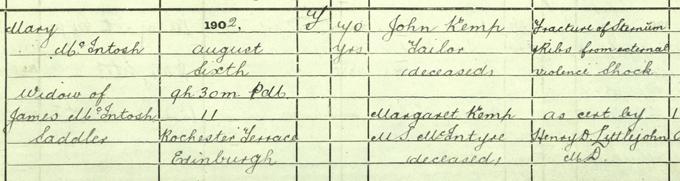 Mary 1902, F 40 John Kemp Fracture of Sternum
McIntosh august yrs Tailor & Ribs from external
Sixth (deceased) violence Shock
Widow of 9h 30m P.M.
James McIntosh 11 Margaret Kemp as cert by
Saddler Rochester Terrace M.S. McIntyre Henry D. Littlejohn
Edinburgh (deceased) M.D.